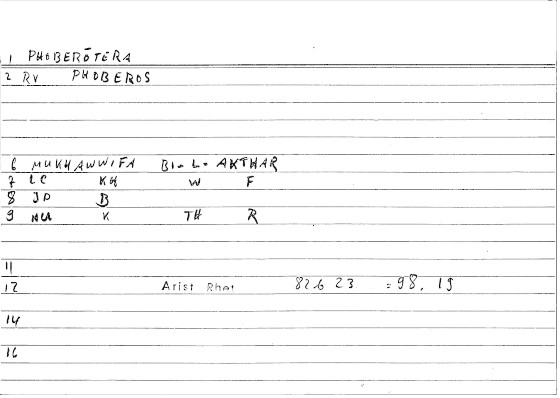 1 PHOBERŌTERA
2 RV PHOBEROS
6 MUKHAWWIFA BI-L-AKTHAR
7 LC KH W F
8 JP B
9 K TH R
11
12 Arist Rhet 82b 23 = 98, 19
14
16